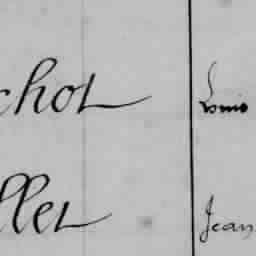 chot Louis
llet Jean